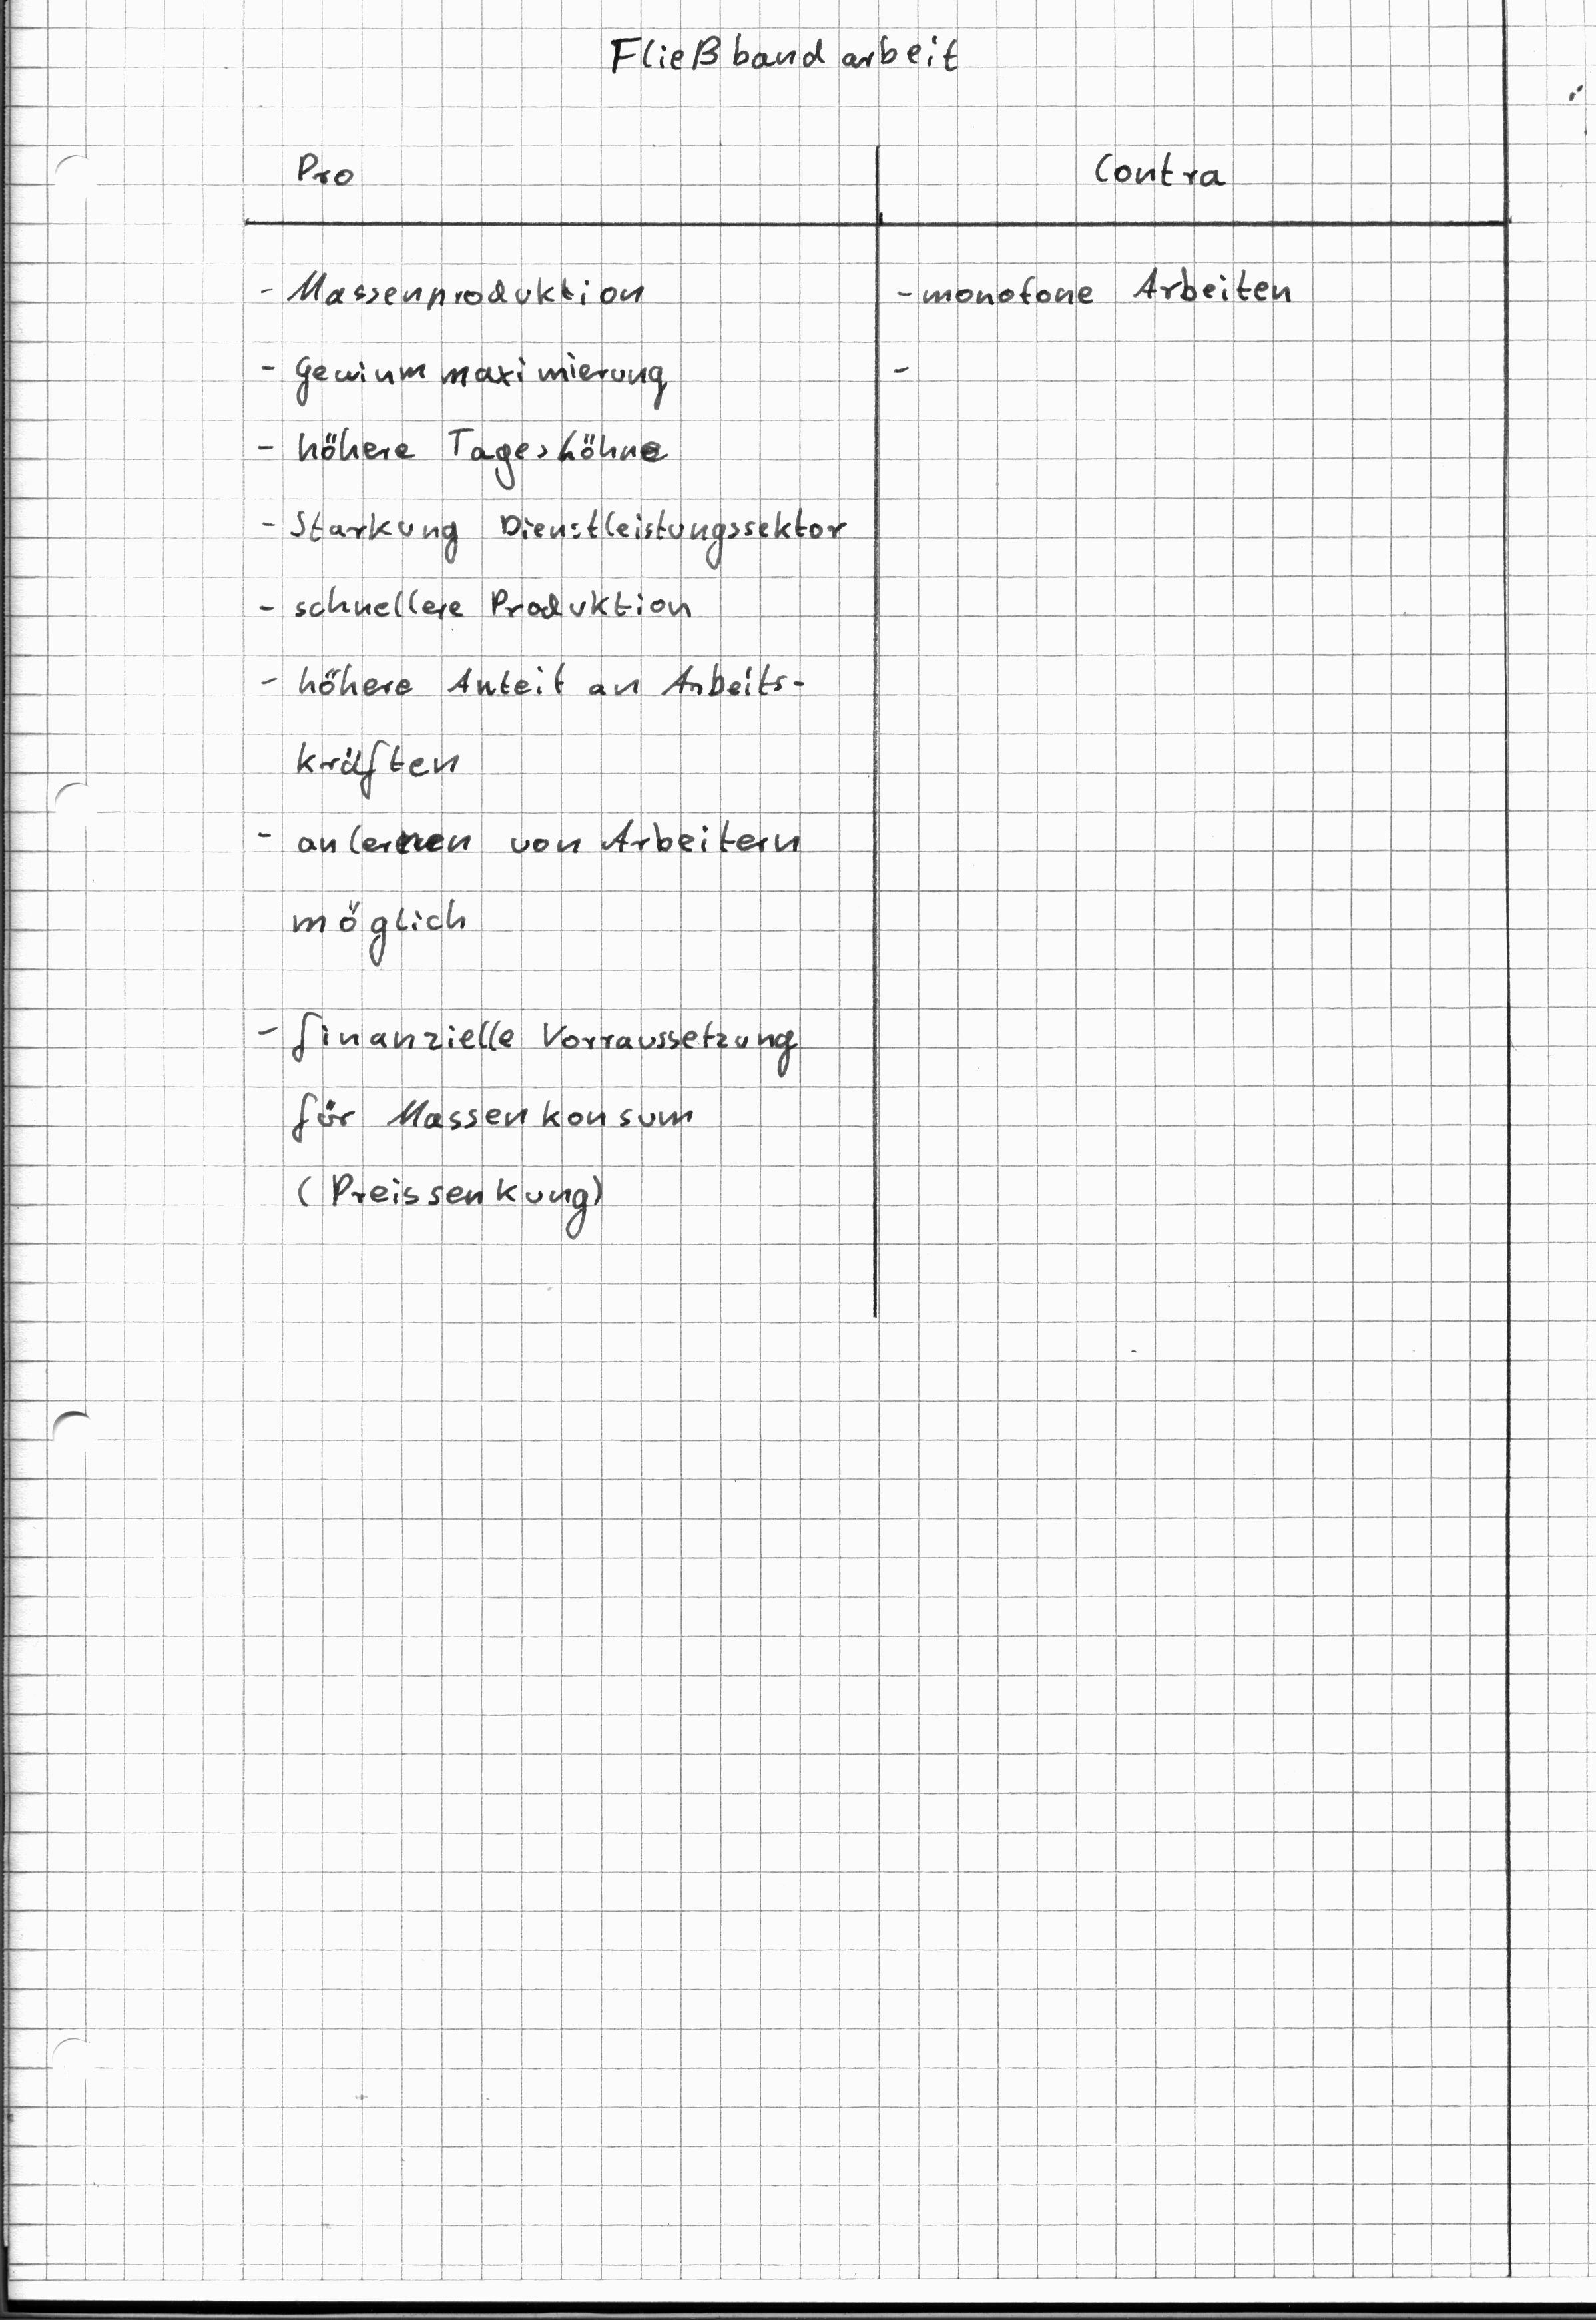 Fließbandarbeit
Pro
Contra
- Massenproduktion
- monotone Arbeiten
- Gewinnmaximierung
-
- höhere Tageslöhne
- Stärkung Dienstleistungssektor
- schnellere Produktion
- höhere Anteil an Arbeits-
kräften
- anlernen von Arbeitern
möglich
- finanzielle Vorraussetzung
für Massenkonsum
(Preissenkung)